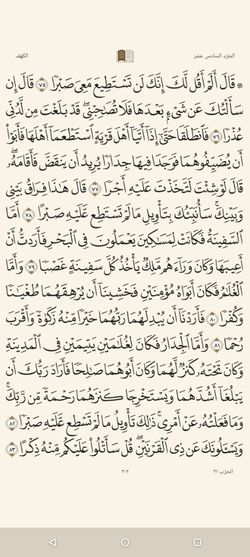 الجزء السادس عشر
الكهف
۞ قَالَ أَلَمْ أَقُل لَّكَ إِنَّكَ لَن تَسْتَطِيعَ مَعِيَ صَبْرًا ٧٥ قَالَ إِن
سَأَلْتُكَ عَن شَيْءٍ بَعْدَهَا فَلَا تُصَٰحِبْنِي ۖ قَدْ بَلَغْتَ مِن لَّدُنِّي
عُذْرًا ٧٦ فَٱنطَلَقَا حَتَّىٰٓ إِذَآ أَتَيَآ أَهْلَ قَرْيَةٍ ٱسْتَطْعَمَآ أَهْلَهَا فَأَبَوْا۟
أَن يُضَيِّفُوهُمَا فَوَجَدَا فِيهَا جِدَارًا يُرِيدُ أَن يَنقَضَّ فَأَقَامَهُۥ ۖ
قَالَ لَوْ شِئْتَ لَتَّخَذْتَ عَلَيْهِ أَجْرًا ٧٧ قَالَ هَٰذَا فِرَاقُ بَيْنِي
وَبَيْنِكَ ۚ سَأُنَبِّئُكَ بِتَأْوِيلِ مَا لَمْ تَسْتَطِع عَّلَيْهِ صَبْرًا ٧٨ أَمَّا
ٱلسَّفِينَةُ فَكَانَتْ لِمَسَٰكِينَ يَعْمَلُونَ فِي ٱلْبَحْرِ فَأَرَدتُّ أَنْ
أَعِيبَهَا وَكَانَ وَرَآءَهُم مَّلِكٌ يَأْخُذُ كُلَّ سَفِينَةٍ غَصْبًا ٧٩ وَأَمَّا
ٱلْغُلَٰمُ فَكَانَ أَبَوَاهُ مُؤْمِنَيْنِ فَخَشِينَآ أَن يُرْهِقَهُمَا طُغْيَٰنًا
وَكُفْرًا ٨٠ فَأَرَدْنَآ أَن يُبْدِلَهُمَا رَبُّهُمَا خَيْرًا مِّنْهُ زَكَوٰةً وَأَقْرَبَ
رُحْمًا ٨١ وَأَمَّا ٱلْجِدَارُ فَكَانَ لِغُلَٰمَيْنِ يَتِيمَيْنِ فِي ٱلْمَدِينَةِ
وَكَانَ تَحْتَهُۥ كَنزٌ لَّهُمَا وَكَانَ أَبُوهُمَا صَٰلِحًا فَأَرَادَ رَبُّكَ أَن
يَبْلُغَآ أَشُدَّهُمَا وَيَسْتَخْرِجَا كَنزَهُمَا رَحْمَةً مِّن رَّبِّكَ ۚ
وَمَا فَعَلْتُهُۥ عَنْ أَمْرِي ۚ ذَٰلِكَ تَأْوِيلُ مَا لَمْ تَسْطِع عَّلَيْهِ صَبْرًا ٨٢
وَيَسْـَٔلُونَكَ عَن ذِي ٱلْقَرْنَيْنِ ۖ قُلْ سَأَتْلُوا۟ عَلَيْكُم مِّنْهُ ذِكْرًا ٨٣
٣٠٢
الحزب ٣١